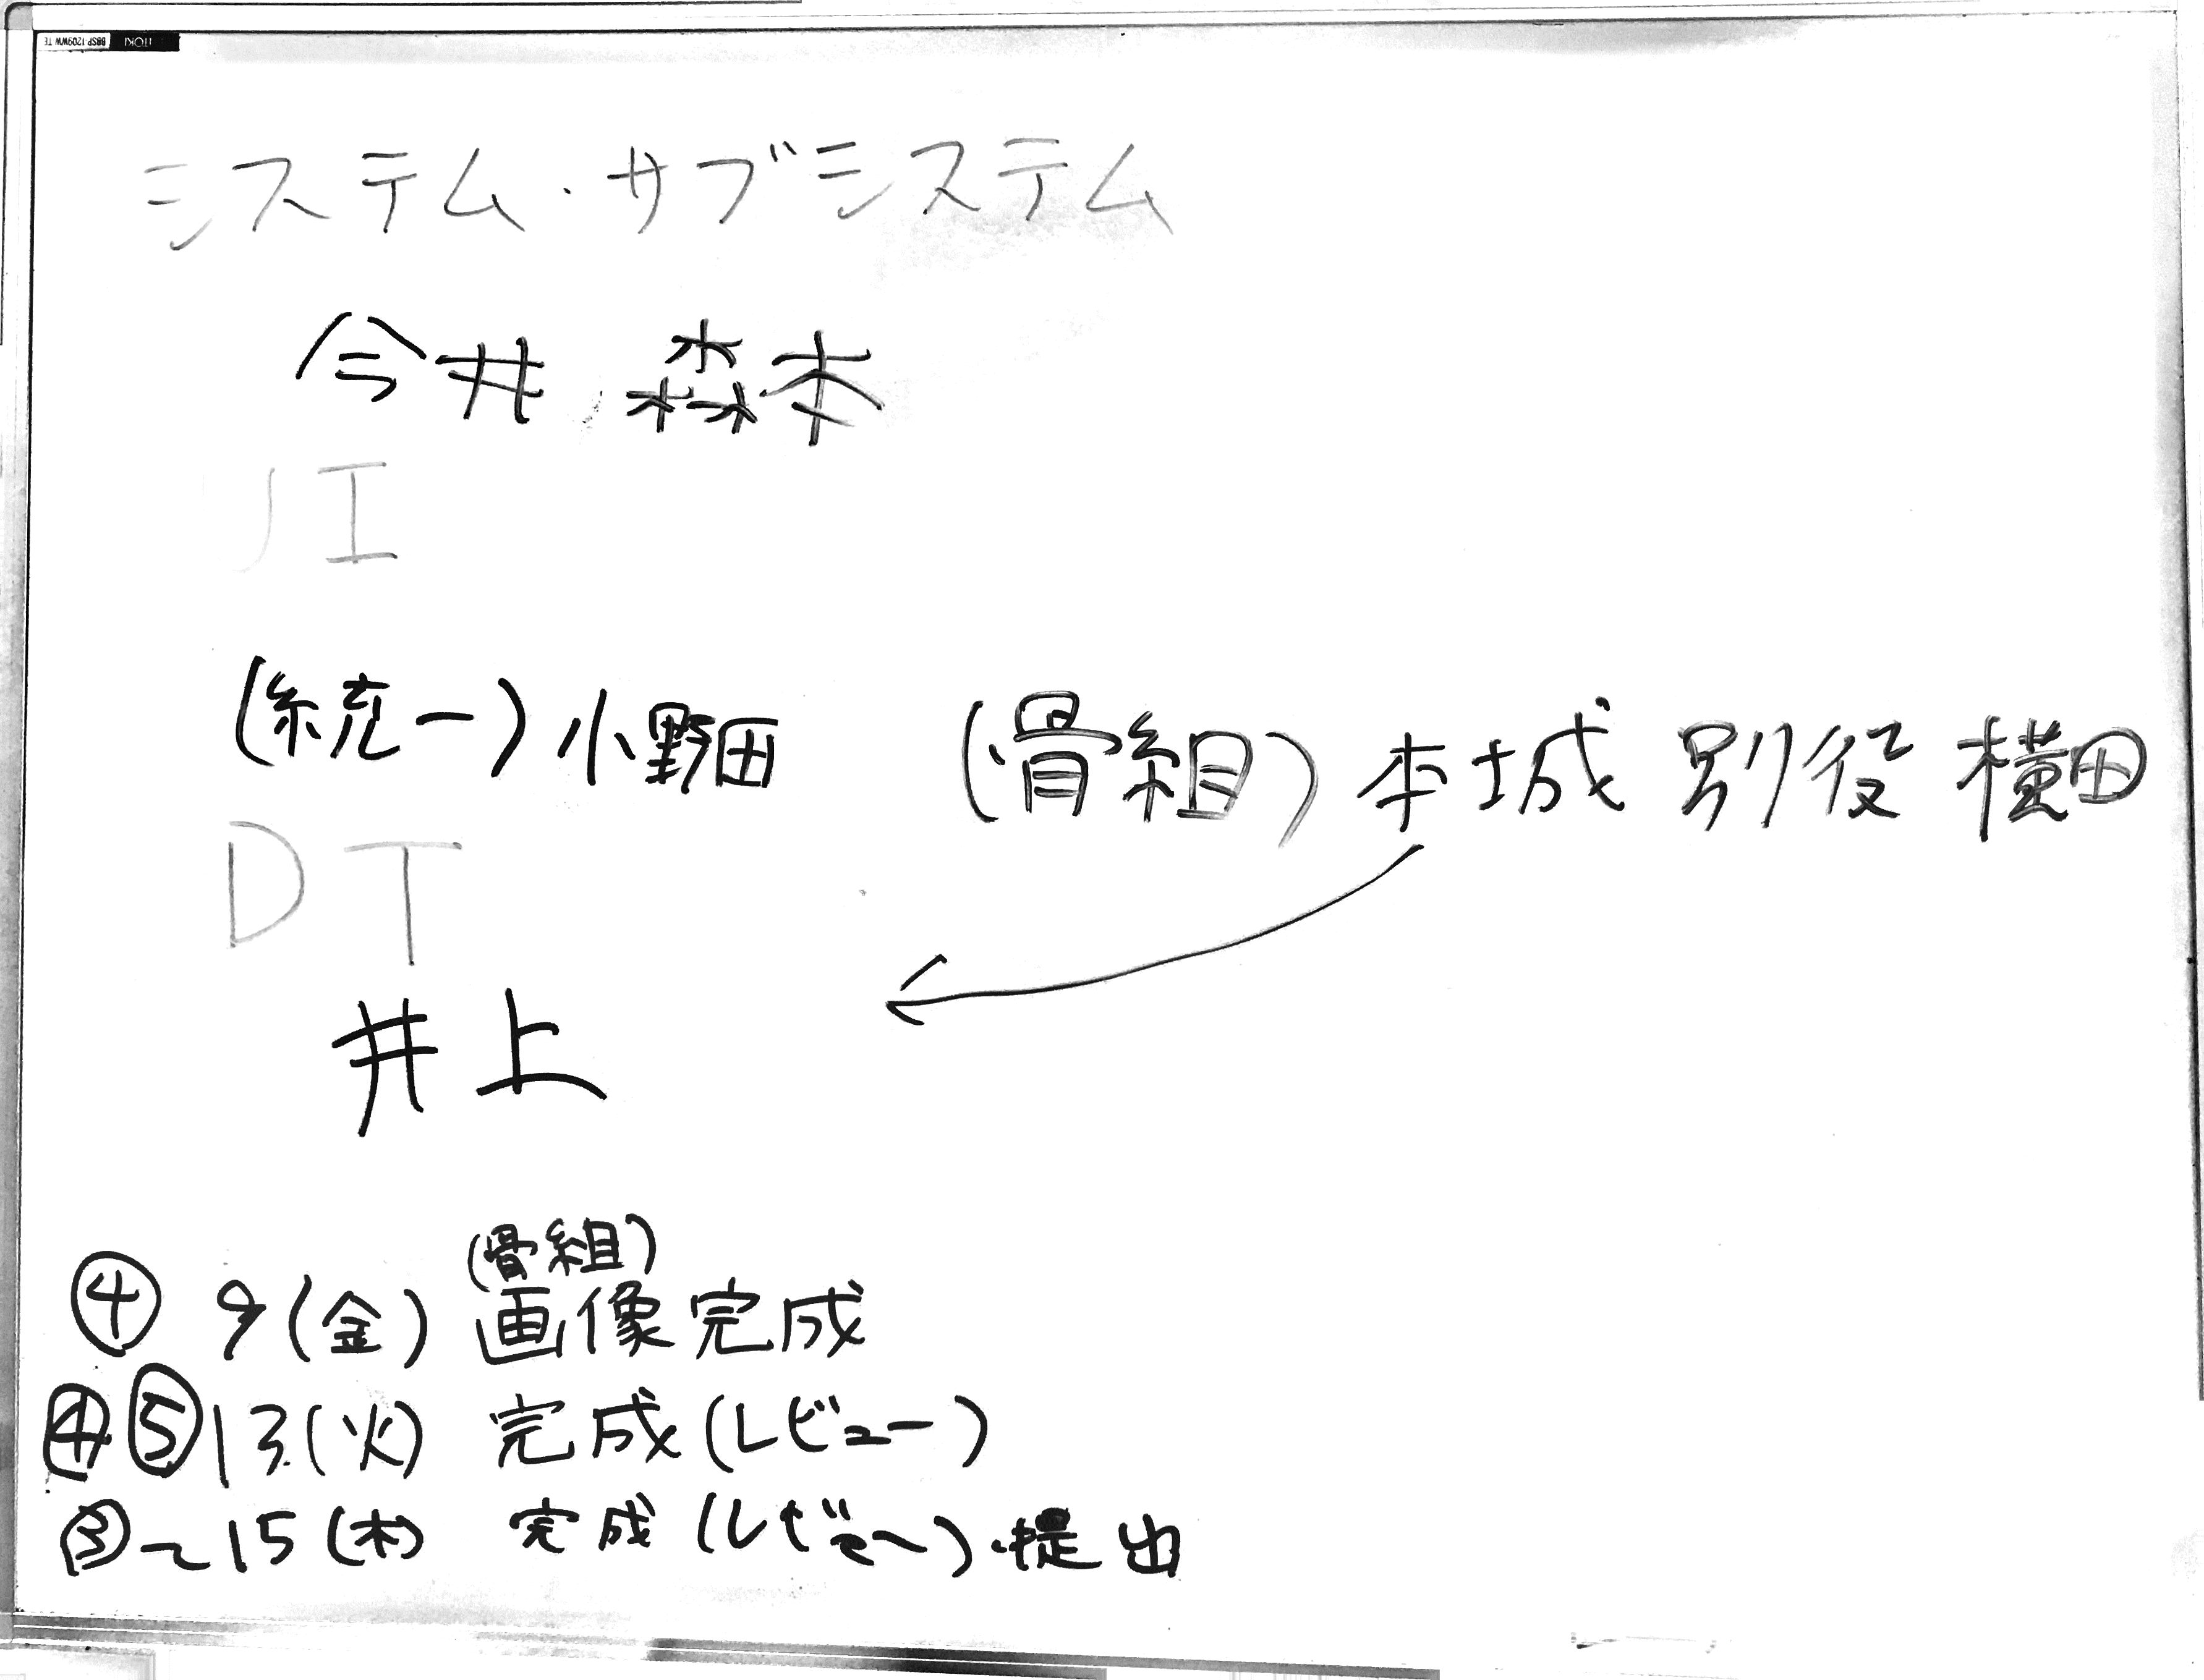 ITOKI BBSP 1209WW TE
システム・サブシステム
今井 森本
UI
(統一)小野田 (骨組)本城 別役 横田
DT
井上
(骨組)
④ 9(金) 画像完成
④ ⑤ 13(火) 完成(レビュー)
③~15(木) 完成(レビュー)・提出